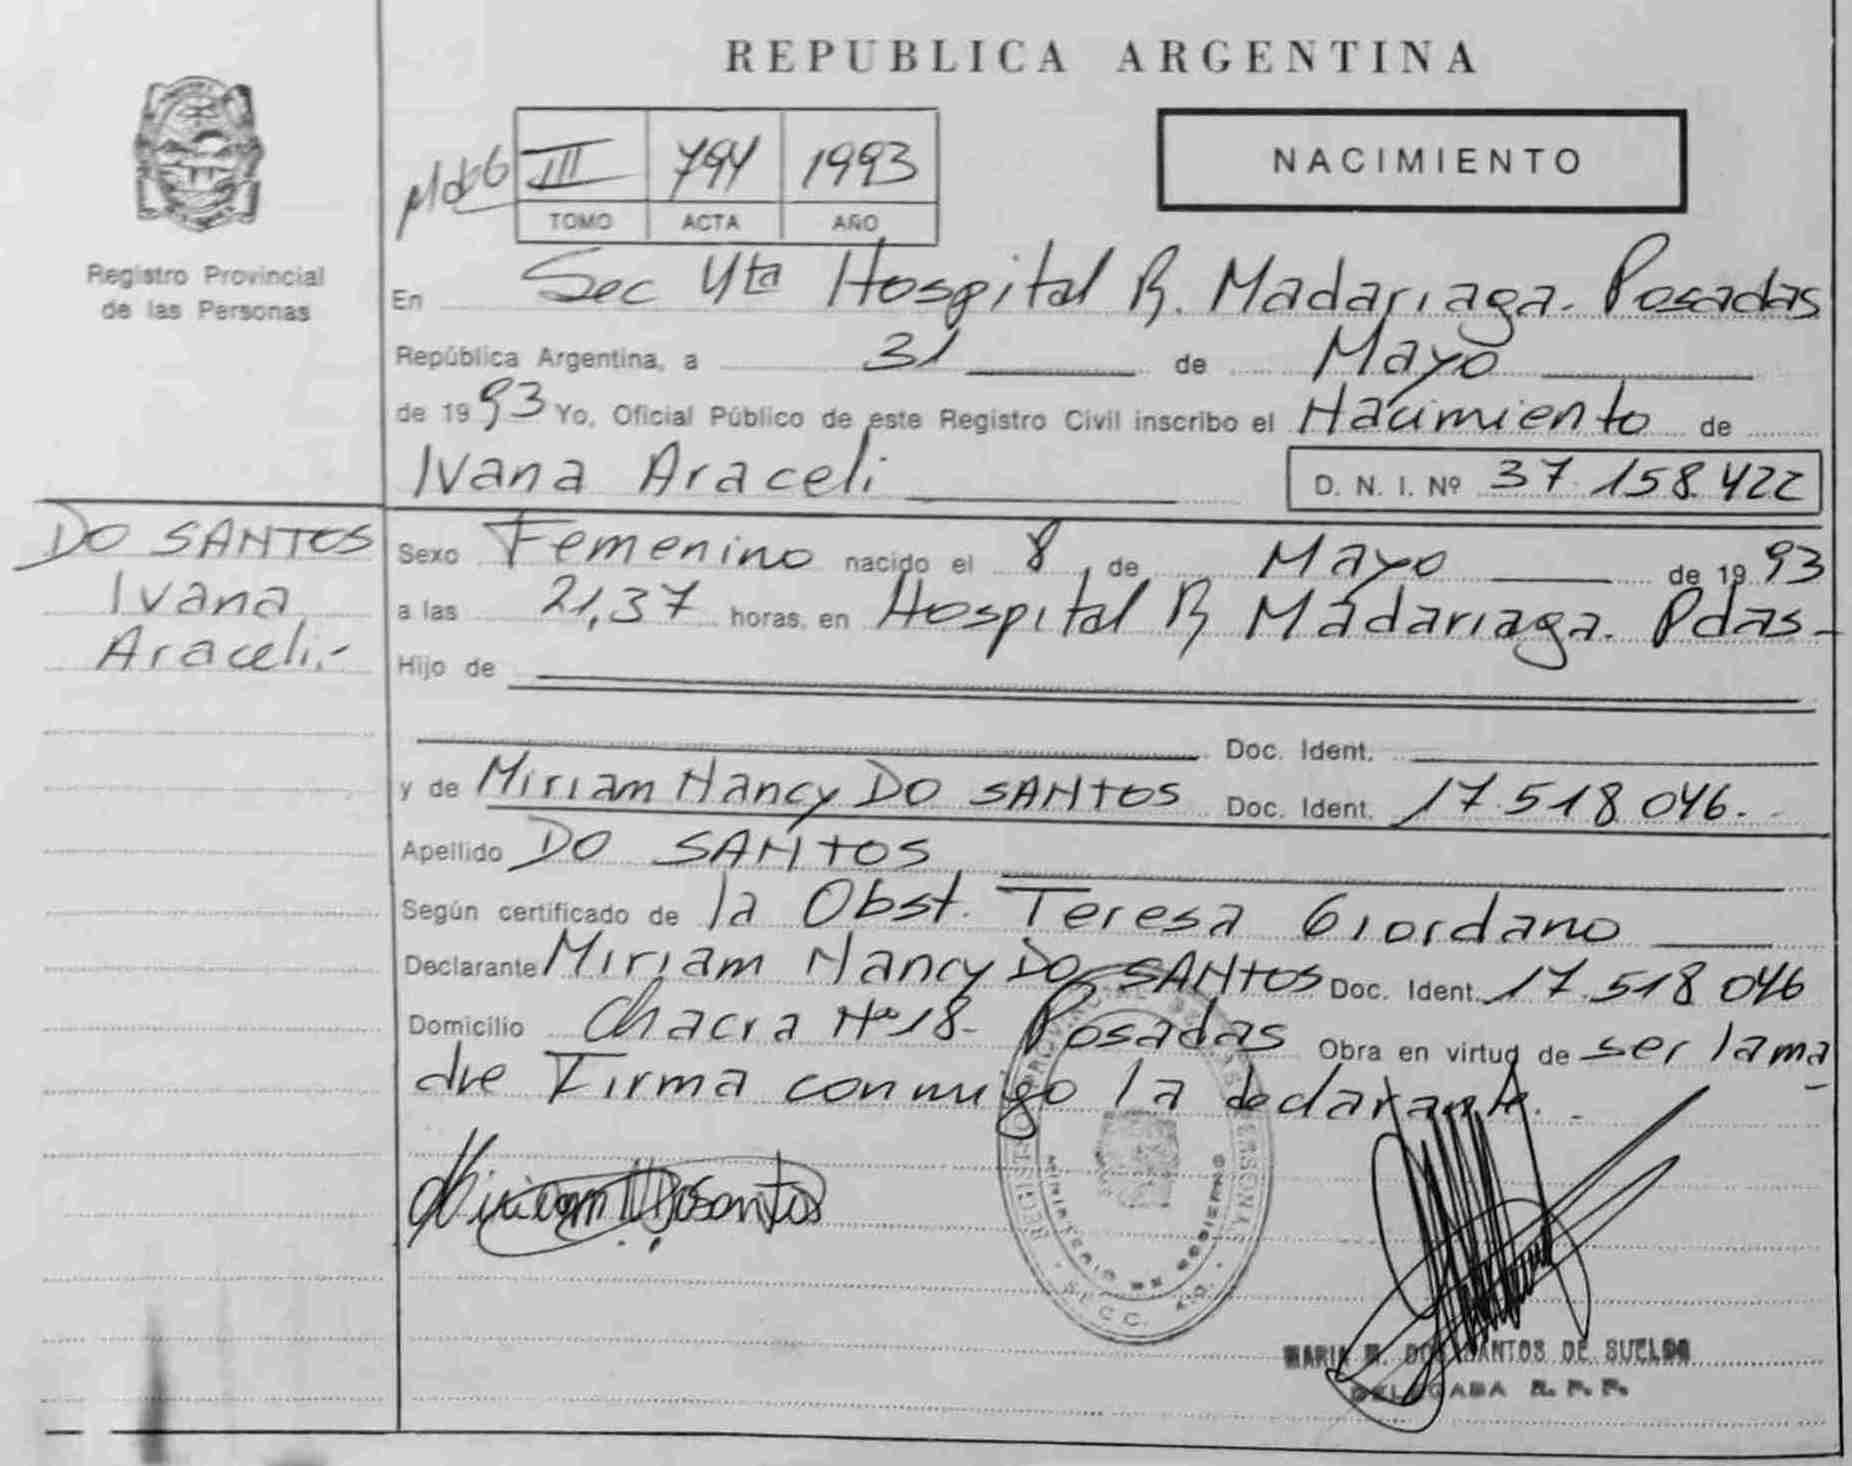 REPUBLICA ARGENTINA
NACIMIENTO
III 794 1993
TOMO ACTA AÑO
Registro Provincial
de las Personas
En Sec 4ta Hospital R. Madariaga. Posadas
República Argentina, a 31 de Mayo
de 1993 Yo, Oficial Público de este Registro Civil inscribo el Nacimiento de
Ivana Araceli D. N. I. Nº 37.158.422
DO SANTOS
Ivana
Araceli.-
Sexo Femenino nacido el 8 de Mayo de 1993
a las 21,37 horas, en Hospital R Madariaga. Pdas-
Hijo de
Doc. Ident.
y de Miriam Nancy DO SANTOS Doc. Ident. 17.518.046.-
Apellido DO SANTOS
Según certificado de la Obst. Teresa Giordano
Declarante Miriam Nancy DO SANTOS Doc. Ident. 17.518.046
Domicilio Chacra Nº 18- Posadas Obra en virtud de ser la ma
dre Firma conmigo la declarante.-
REGISTRO PROVINCIAL DE LAS PERSONAS
MINISTERIO DE GOBIERNO
MARIA DOS SANTOS DE SUELDO
DELEGADA R. P. P.